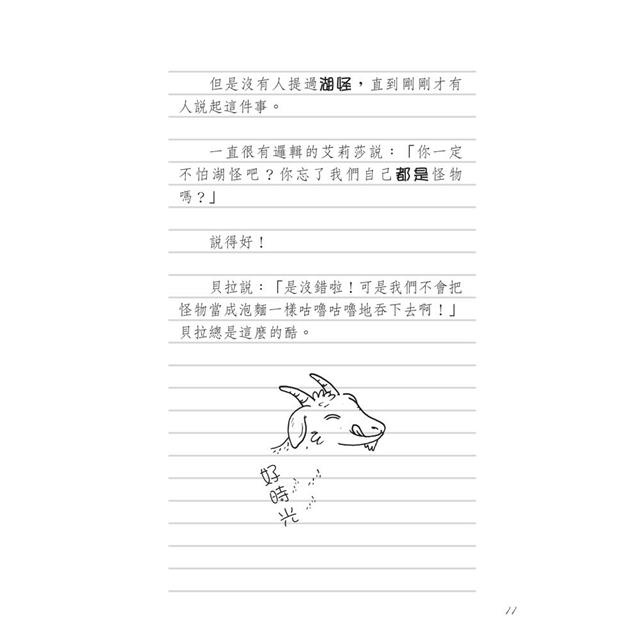 但是沒有人提過湖怪，直到剛剛才有
人說起這件事。
一直很有邏輯的艾莉莎說：「你一定
不怕湖怪吧？你忘了我們自己都是怪物
嗎？」
說得好！
貝拉說：「是沒錯啦！可是我們不會把
怪物當成泡麵一樣咕嚕咕嚕地吞下去啊！」
貝拉總是這麼的酷。
好時光
11